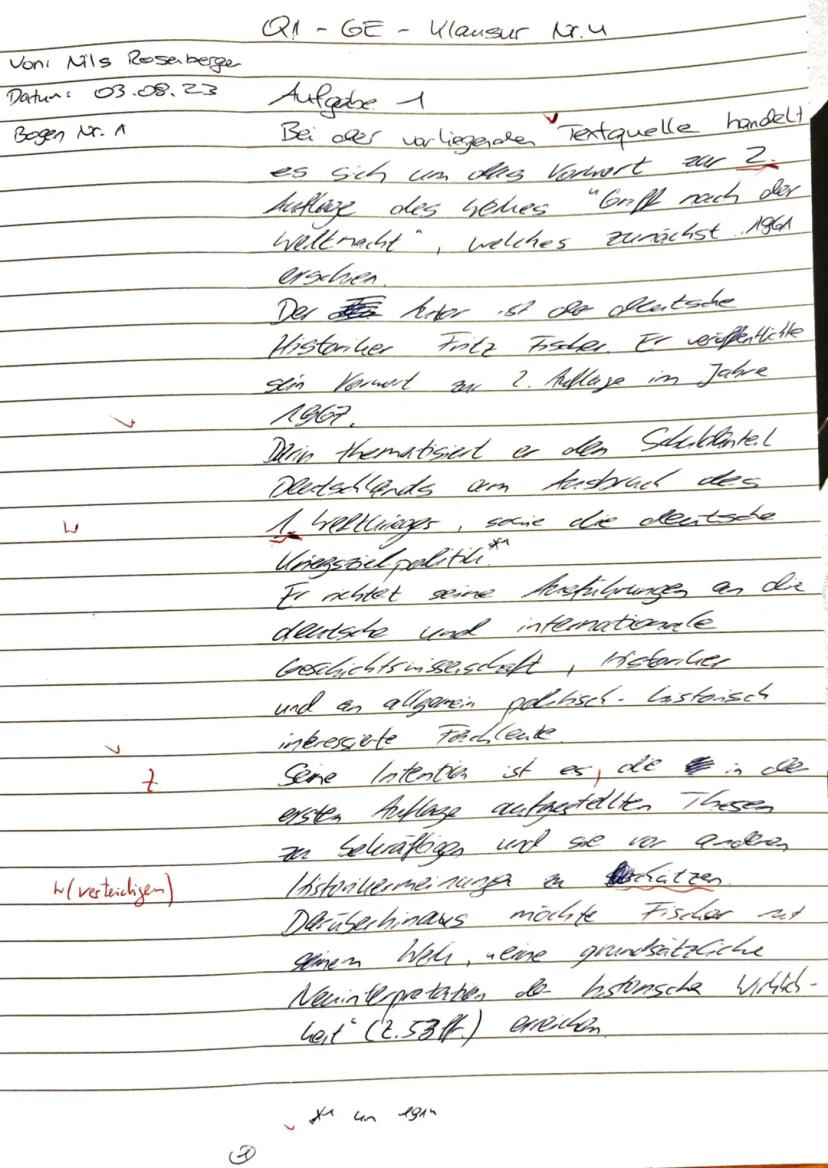 Q1 - GE - Klausur Nr. 4
Von: Nils Rosenberger
Datum: 03.08.23
Aufgabe 1
Bogen Nr. 1
Bei der vorliegenden Textquelle handelt
es sich um das Vorwort zur 2.
Auflage des Werkes "Griff nach der
Weltmacht", welches zunächst 1961
erschien.
Der Autor ist der deutsche
Historiker Fritz Fischer. Er veröffentlichte
sein Vorwort zur 2. Auflage im Jahre
1967.
Darin thematisiert er den Schuldanteil
Deutschlands am Ausbruch des
1. Weltkrieges, sowie die deutsche
Kriegszielpolitik.*1
Er richtet seine Ausführungen an die
deutsche und internationale
Geschichtswissenschaft, Historiker
und an allgemein politisch-historisch
interessierte Fachleute.
Seine Intention ist es, die in der
ersten Auflage aufgestellten Thesen
zu bekräftigen und sie vor anderen
Historikermeinungen zu schützen.
W (verteidigen)
Darüberhinaus möchte Fischer mit
seinem Werk, "eine grundsätzliche
Neuinterpretation der historische Wirklich-
keit" (Z.53ff.) erreichen.
*1 im
1